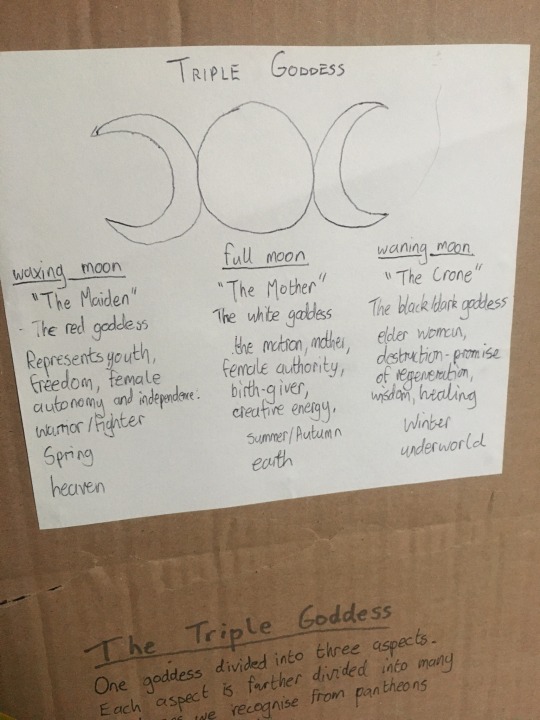 TRIPLE GODDESS
waxing moon
"The Maiden"
- The red goddess
Represents youth,
freedom, female
autonomy and independence.
warrior/fighter
Spring
heaven
full moon
"The Mother"
The white goddess
the matron, mother,
female authority,
birth-giver,
creative energy.
summer/Autumn
earth
waning moon
"The Crone"
The black/dark goddess
elder woman,
destruction-promise
of regeneration,
wisdom, healing
Winter
underworld
The Triple Goddess
One goddess divided into three aspects.
Each aspect is further divided into many
we recognise from pantheons